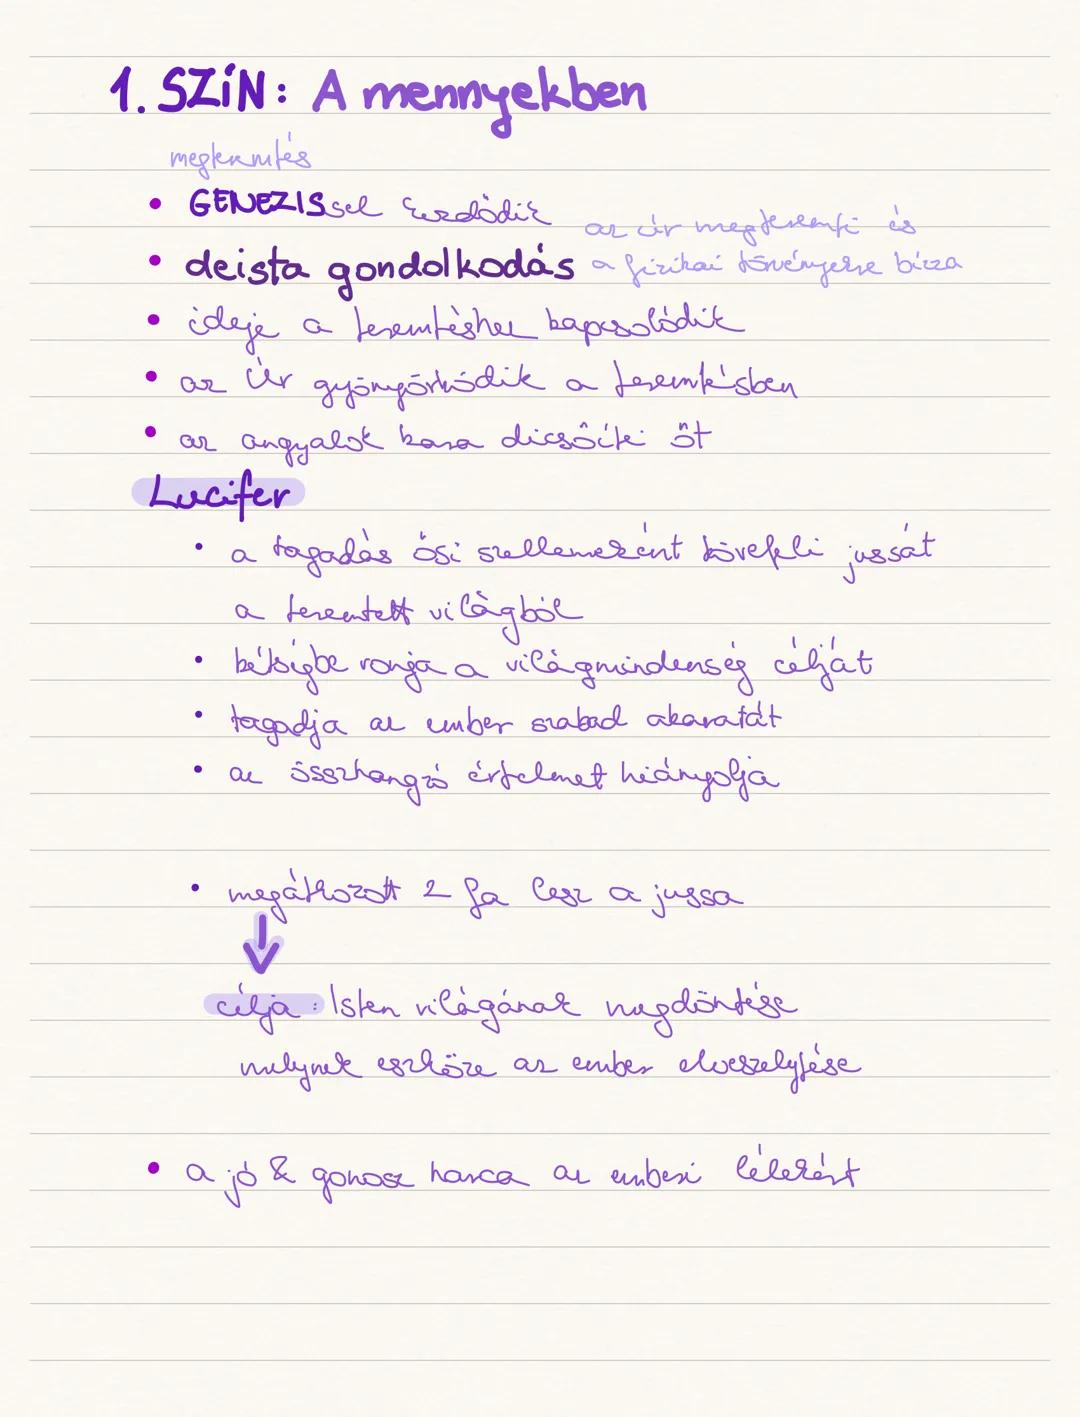 1. SZÍN: A mennyekben
megteremtés
• GENEZISsel kezdődik
az úr megteremti és
• deista gondolkodás a fizikai törvényekre bízza
• ideje a teremtéshez kapcsolódik
• az Úr gyönyörködik a teremtésben
• az angyalok kara dicsőíti őt
Lucifer
• a tagadás ősi szellemeként követeli jussát
a teremtett világból
• kétségbe vonja a világmindenség célját
• tagadja az ember szabad akaratát
• az összhangzó értelmet hiányolja
• megátkozott 2 fa lesz a jussa
↓
célja: Isten világának megdöntése
melynek eszköze az ember elveszejtése
• a jó & gonosz harca az emberi lélekért